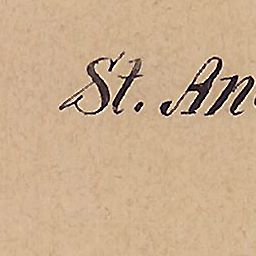 St. An